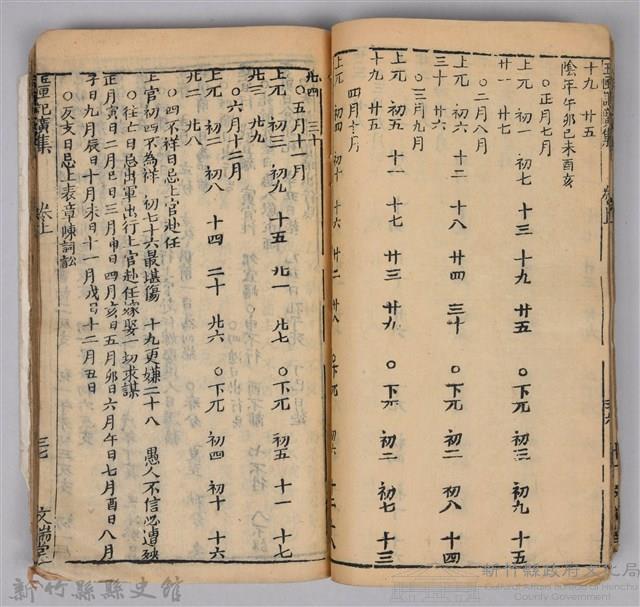 十九 廿五
陰年午卯巳未酉亥
〇正月七月
上兀 初一 初七 十三 十九 廿五 〇下兀 初二 初七 十三
廿一 廿七
〇二月八月
上兀 初六 十二 十八 廿四 三十 〇下兀 初二 初八 十四
三十 廿六
〇三月九月
上兀 初五 十一 十七 廿三 廿九 〇下兀
十九 廿五
四月十月
上兀 初四 初十 十六 廿二 廿八 〇下兀 初六 十二 十八
卷上
三六
廿四 三十
〇五月十一月
上兀 初三 初九 十五 廿一 廿七 〇下兀 初五 十一 十七
廿三 廿九
〇六月十二月
上兀 初二 初八 十四 二十 廿六 〇下兀 初四 初十 十六
廿二 廿八
〇四不祥日忌上官赴任
上官初四不為祥 初七十六最堪傷 十九更嫌二十八 愚人不信必遭殃
〇往亡日忌出軍出行上官赴任嫁娶一切求謀
正月寅日二月巳日三月申日四月亥日五月卯日六月午日七月酉日八月
子日九月辰日十月未日十一月戌日十二月丑日
〇反亥日忌上表章陳詞訟
玉匣記廣集 卷上 三七 文瑞堂
新竹縣縣史館
新竹縣政府文化局
Cultural Affairs Bureau of Hsinchu County Government